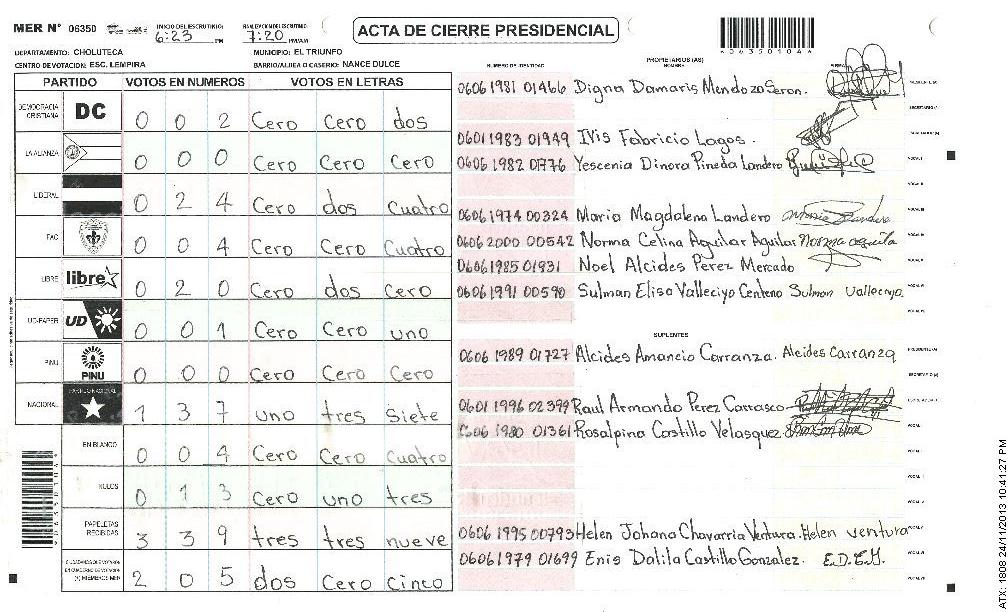 MER N° 06350 INICIO DEL ESCRUTINIO: 6:23 PM FINALIZACION DEL ESCRUTINIO 7:20 PM/AM
ACTA DE CIERRE PRESIDENCIAL
DEPARTAMENTO: CHOLUTECA MUNICIPIO: EL TRIUNFO
CENTRO DE VOTACION: ESC. LEMPIRA BARRIO/ALDEA O CASERIO: NANCE DULCE
PARTIDO VOTOS EN NUMEROS VOTOS EN LETRAS
DEMOCRACIA CRISTIANA DC 0 0 2 Cero Cero dos
LA ALIANZA 0 0 0 Cero Cero Cero
LIBERAL 0 2 4 Cero dos Cuatro
FAC 0 0 4 Cero Cero Cuatro
LIBRE libre 0 2 0 Cero dos Cero
UD-FAPER UD 0 0 1 Cero Cero uno
PINU PINU 0 0 0 Cero Cero Cero
NACIONAL PARTIDO NACIONAL 1 3 7 uno tres Siete
EN BLANCO 0 0 4 Cero Cero Cuatro
NULOS 0 1 3 Cero uno tres
PAPELETAS RECIBIDAS 3 3 9 tres tres nueve
2 0 5 dos Cero Cinco
NUMERO DE IDENTIDAD PROPIETARIOS (AS) NOMBRE
0606 1981 01466 Digna Damaris Mendoza Seron.
0601 1983 01949 Ivis Fabricio Lagos.
0606 1982 01776 Yescenia Dinora Pineda Landero
0606 1974 00324 Maria Magdalena Landero
0606 2000 00542 Norma Celina Aguilar Aguilar Norma aguila
0606 1985 01931 Noel Alcides Perez Mercado
0606 1991 00590 Sulman Elisa Valleciyo Centeno Sulman Valleciyo
SUPLENTES
0606 1989 01727 Alcides Amancio Carranza. Alcides Carranza
0601 1996 02399 Raul Armando Perez Carrasco
0606 1980 01361 Rosalpina Castillo Velasquez
0606 1995 00793 Helen Johana Chavarria Ventura. Helen ventura
0606 1979 01699 Enis Dalila Castillo Gonzalez.
4063501044
ATX: 1808 24/11/2013 10:41:27 PM